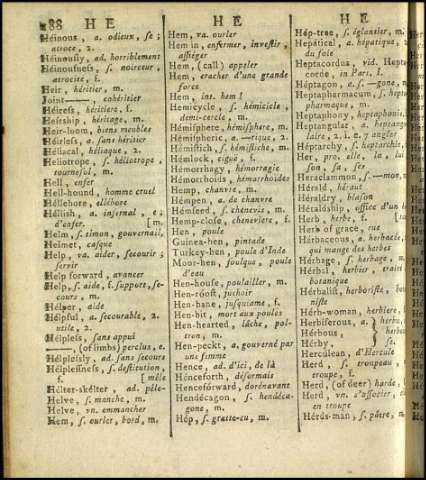 88 HE HE HE
Héinous, a. odieux, se ;
atroce, 2.
Héinously, ad. horriblement
Héinousness, s. noirceur,
atrocité, f.
Heir, héritier, m.
Joint——, cohéritier
Héiress, héritiere, f.
Heirship, héritage, m.
Heir-loom, biens meubles
Héirless, a. sans héritier
Héliacal, héliaque, 2.
Heliotrope, s. héliotrope ;
tournesol, m.
Hell, enfer
Hell-hound, homme cruel
Héllebore, ellébore
Héllish, a. infernal, e ;
d'enfer. [m.
Helm, s. timon, gouvernail,
Helmet, casque
Help, va. aider, secourir ;
servir
Help forward, avancer
Help, s. aide, f. support, se-
cours, m.
Hélper, aide
Hélpful, a. secourable, 2.
utile, 2.
Hélpless, sans appui
——, (of limbs) perclus, e.
Hélplessly, ad. sans secours
Hélplessness, s. destitution,
f. [mêle
Hélter-skélter, ad. pêle-
Helve, s. manche, m.
Helve, vn. emmancher
Hem, s. ourlet, bord, m.
Hem, va. ourler
Hem in, enfermer, investir,
assiéger
Hem, (call) appeler
Hem, cracher d'une grande
force
Hem, int. hem !
Hemicycle, s. hémicicle,
demi-cercle, m.
Hémisphere, hémisphere, m.
Hémispheric, a. —érique, 2.
Hémistich, s. hémistiche, m.
Hémlock, ciguë, f.
Hémorrhagy, hémorragie
Hémorrhoids, hémorrhoïdes
Hemp, chanvre, m.
Hémpen, a. de chanvre
Hémpseed, s. chenevis, m.
Hemp-close, cheneviere, f.
Hen, poule
Guinea-hen, pintade
Turkey-hen, poule d'Inde
Moor-hen, foulque, poule
d'eau
Hen-house, poulailler, m.
Hen-róost, juchoir
Hen-bane, jusquiame, f.
Hen-bit, mort aux poules
Hen-hearted, lâche, pol-
tron, m.
Hen-peckt, a. gouverné par
une femme
Hence, ad. d'ici, de là
Hénceforth, désormais
Hencefórward, dorénavant
Hendécagon, s. hendéca-
gone, m.
Hép, s. gratte-cu, m.
Hép-tree, s. églantier, m.
Hepátical, a. hépatique, 2.
du foie
Heptacordus, vid. Hepta-
corde, in Part. I.
Héptagon, s. —gone,
Heptapharmacum, s. hepta-
pharmaque, m.
Heptaphony, heptaphonie,
Heptangular, a. heptangu-
laire, 2. i. e. 7 angles
Héptarchy, s. heptarchie,
Her, pro. elle, la, lui
son, sa, ses
Heraclammon, s. —mon,
Hérald, héraut
Héraldry, blason
Héraldship, office d'un
Herb, herbe, f.
Herb of grace, rue
Hérbaceous, a. herbacée,
qui mange des herbes
Hérbage, s. herbage, m.
Hérbal, herbier, traité
botanique
Hérbalist, herboriste, bota-
niste
Hérb-woman, herbiere,
Herbíferous, a.
Hérbous } herbu,
Hérby } se.
Hercúlean, d'Hercule
Herd, s. troupeau,
troupe, f.
Herd, (of deer) harde
Herd, vn. s'associer,
en troupe
Hérds-man, s. pâtre,